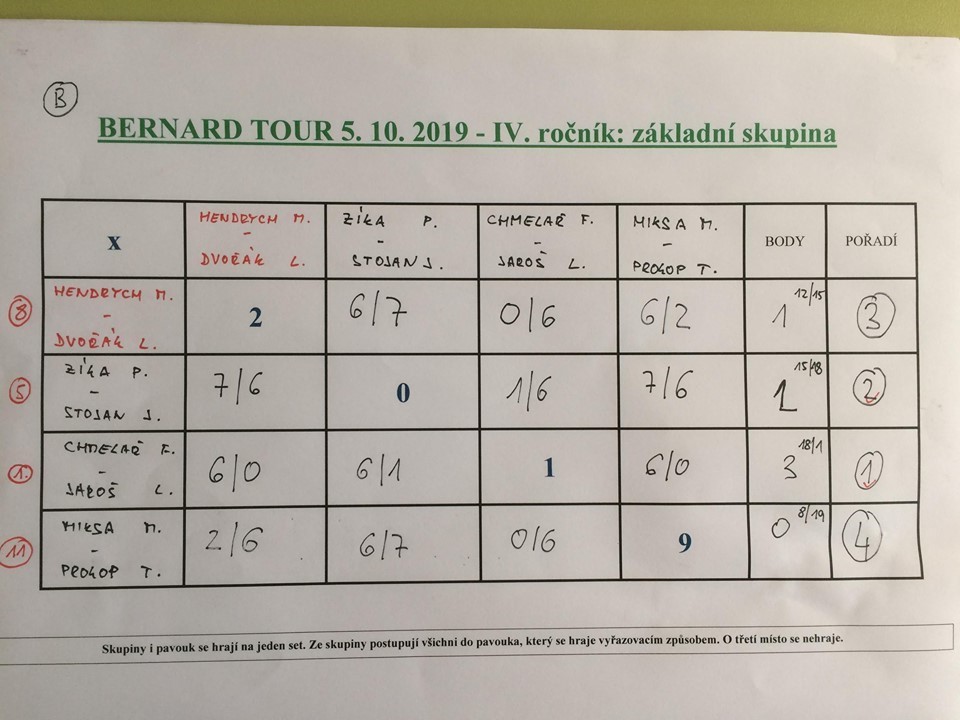 B
BERNARD TOUR 5. 10. 2019 - IV. ročník: základní skupina
x HENDRYCH M. - DVOŘÁK L. ZÍKA P. - STOJAN J. CHMELAŘ F. - JAROŠ L. MIKSA M. - PROKOP T. BODY POŘADÍ
8 HENDRYCH M. - DVOŘÁK L. 2 6/7 0/6 6/2 1 12/15 3
5 ZÍKA P. - STOJAN J. 7/6 0 1/6 7/6 15/18 2
1. CHMELAŘ F. - JAROŠ L. 6/0 6/1 1 6/0 3 18/1 1
11 MIKSA M. - PROKOP T. 2/6 6/7 0/6 9 0 8/19 4
Skupiny i pavouk se hrají na jeden set. Ze skupiny postupují všichni do pavouka, který se hraje vyřazovacím způsobem. O třetí místo se nehraje.